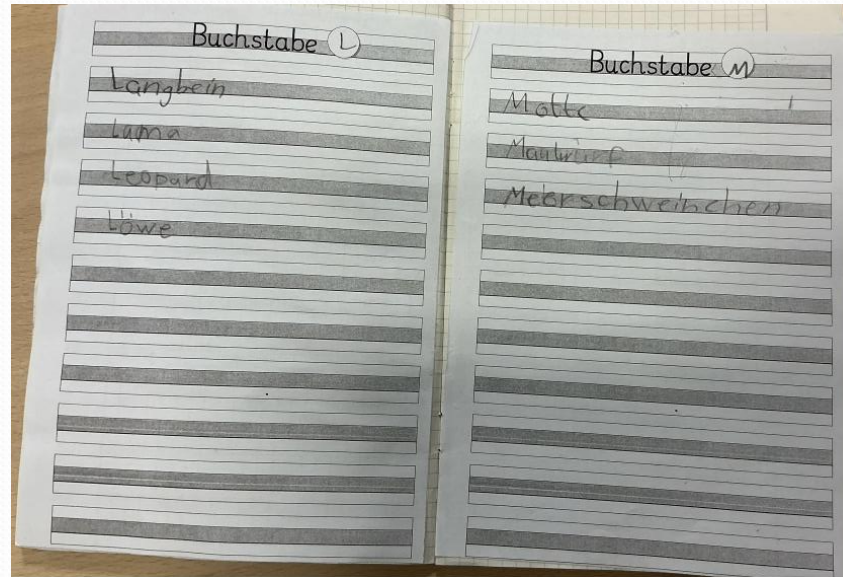 Buchstabe L
Langbein
Lama
Leopard
Löwe
Buchstabe M
Motte
Maulwurf
Meerschweinchen